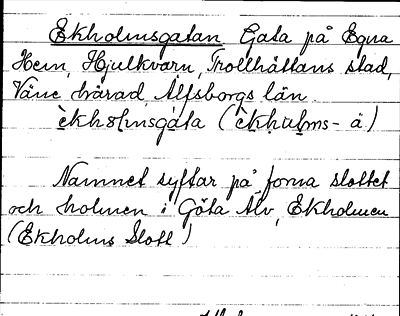 Ekholmsgatan Gata på Egna
Hem, Hjulkvarn, Trollhättans stad,
Väne härad, Älfsborgs län.
èkholmsgàta (èkhulms- ä)
Namnet syftar på forna slottet
och holmen i Göta Älv, Ekholmen
(Ekholms Slott)